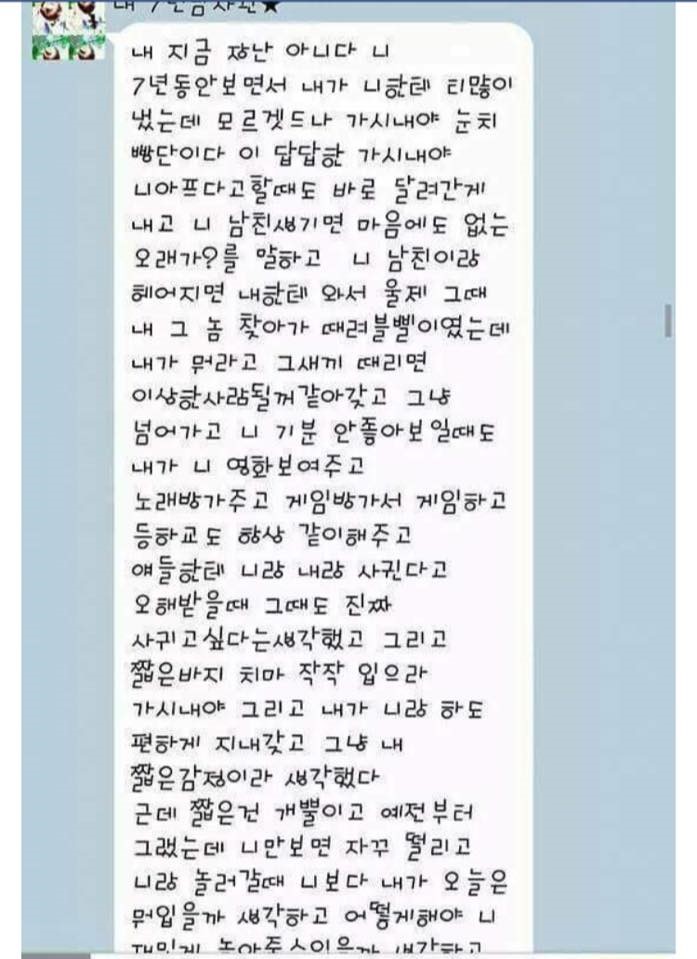 내 지금 장난 아니다 니
7년동안보면서 내가 니한테 티많이
냈는데 모르겟드나 가시내야 눈치
빵단이다 이 답답한 가시내야
니아프다고할때도 바로 달려간게
내고 니 남친생기면 마음에도 없는
오래가?를 말하고 니 남친이랑
헤어지면 내한테 와서 울제 그때
내 그 놈 찾아가 때려블삘이였는데
내가 뭐라고 그새끼 때리면
이상한사람될꺼같아갖고 그냥
넘어가고 니 기분 안좋아보일때도
내가 니 영화보여주고
노래방가주고 게임방가서 게임하고
등하교도 항상 같이해주고
얘들한테 니랑 내랑 사귄다고
오해받을때 그때도 진짜
사귀고싶다는생각했고 그리고
짧은바지 치마 작작 입으라
가시내야 그리고 내가 니랑 하도
편하게 지내갖고 그냥 내
짧은감정이라 생각했다
근데 짧은건 개뿔이고 예전부터
그랬는데 니만보면 자꾸 떨리고
니랑 놀러갈때 니보다 내가 오늘은
뭐입을까 생각하고 어떻게해야 니